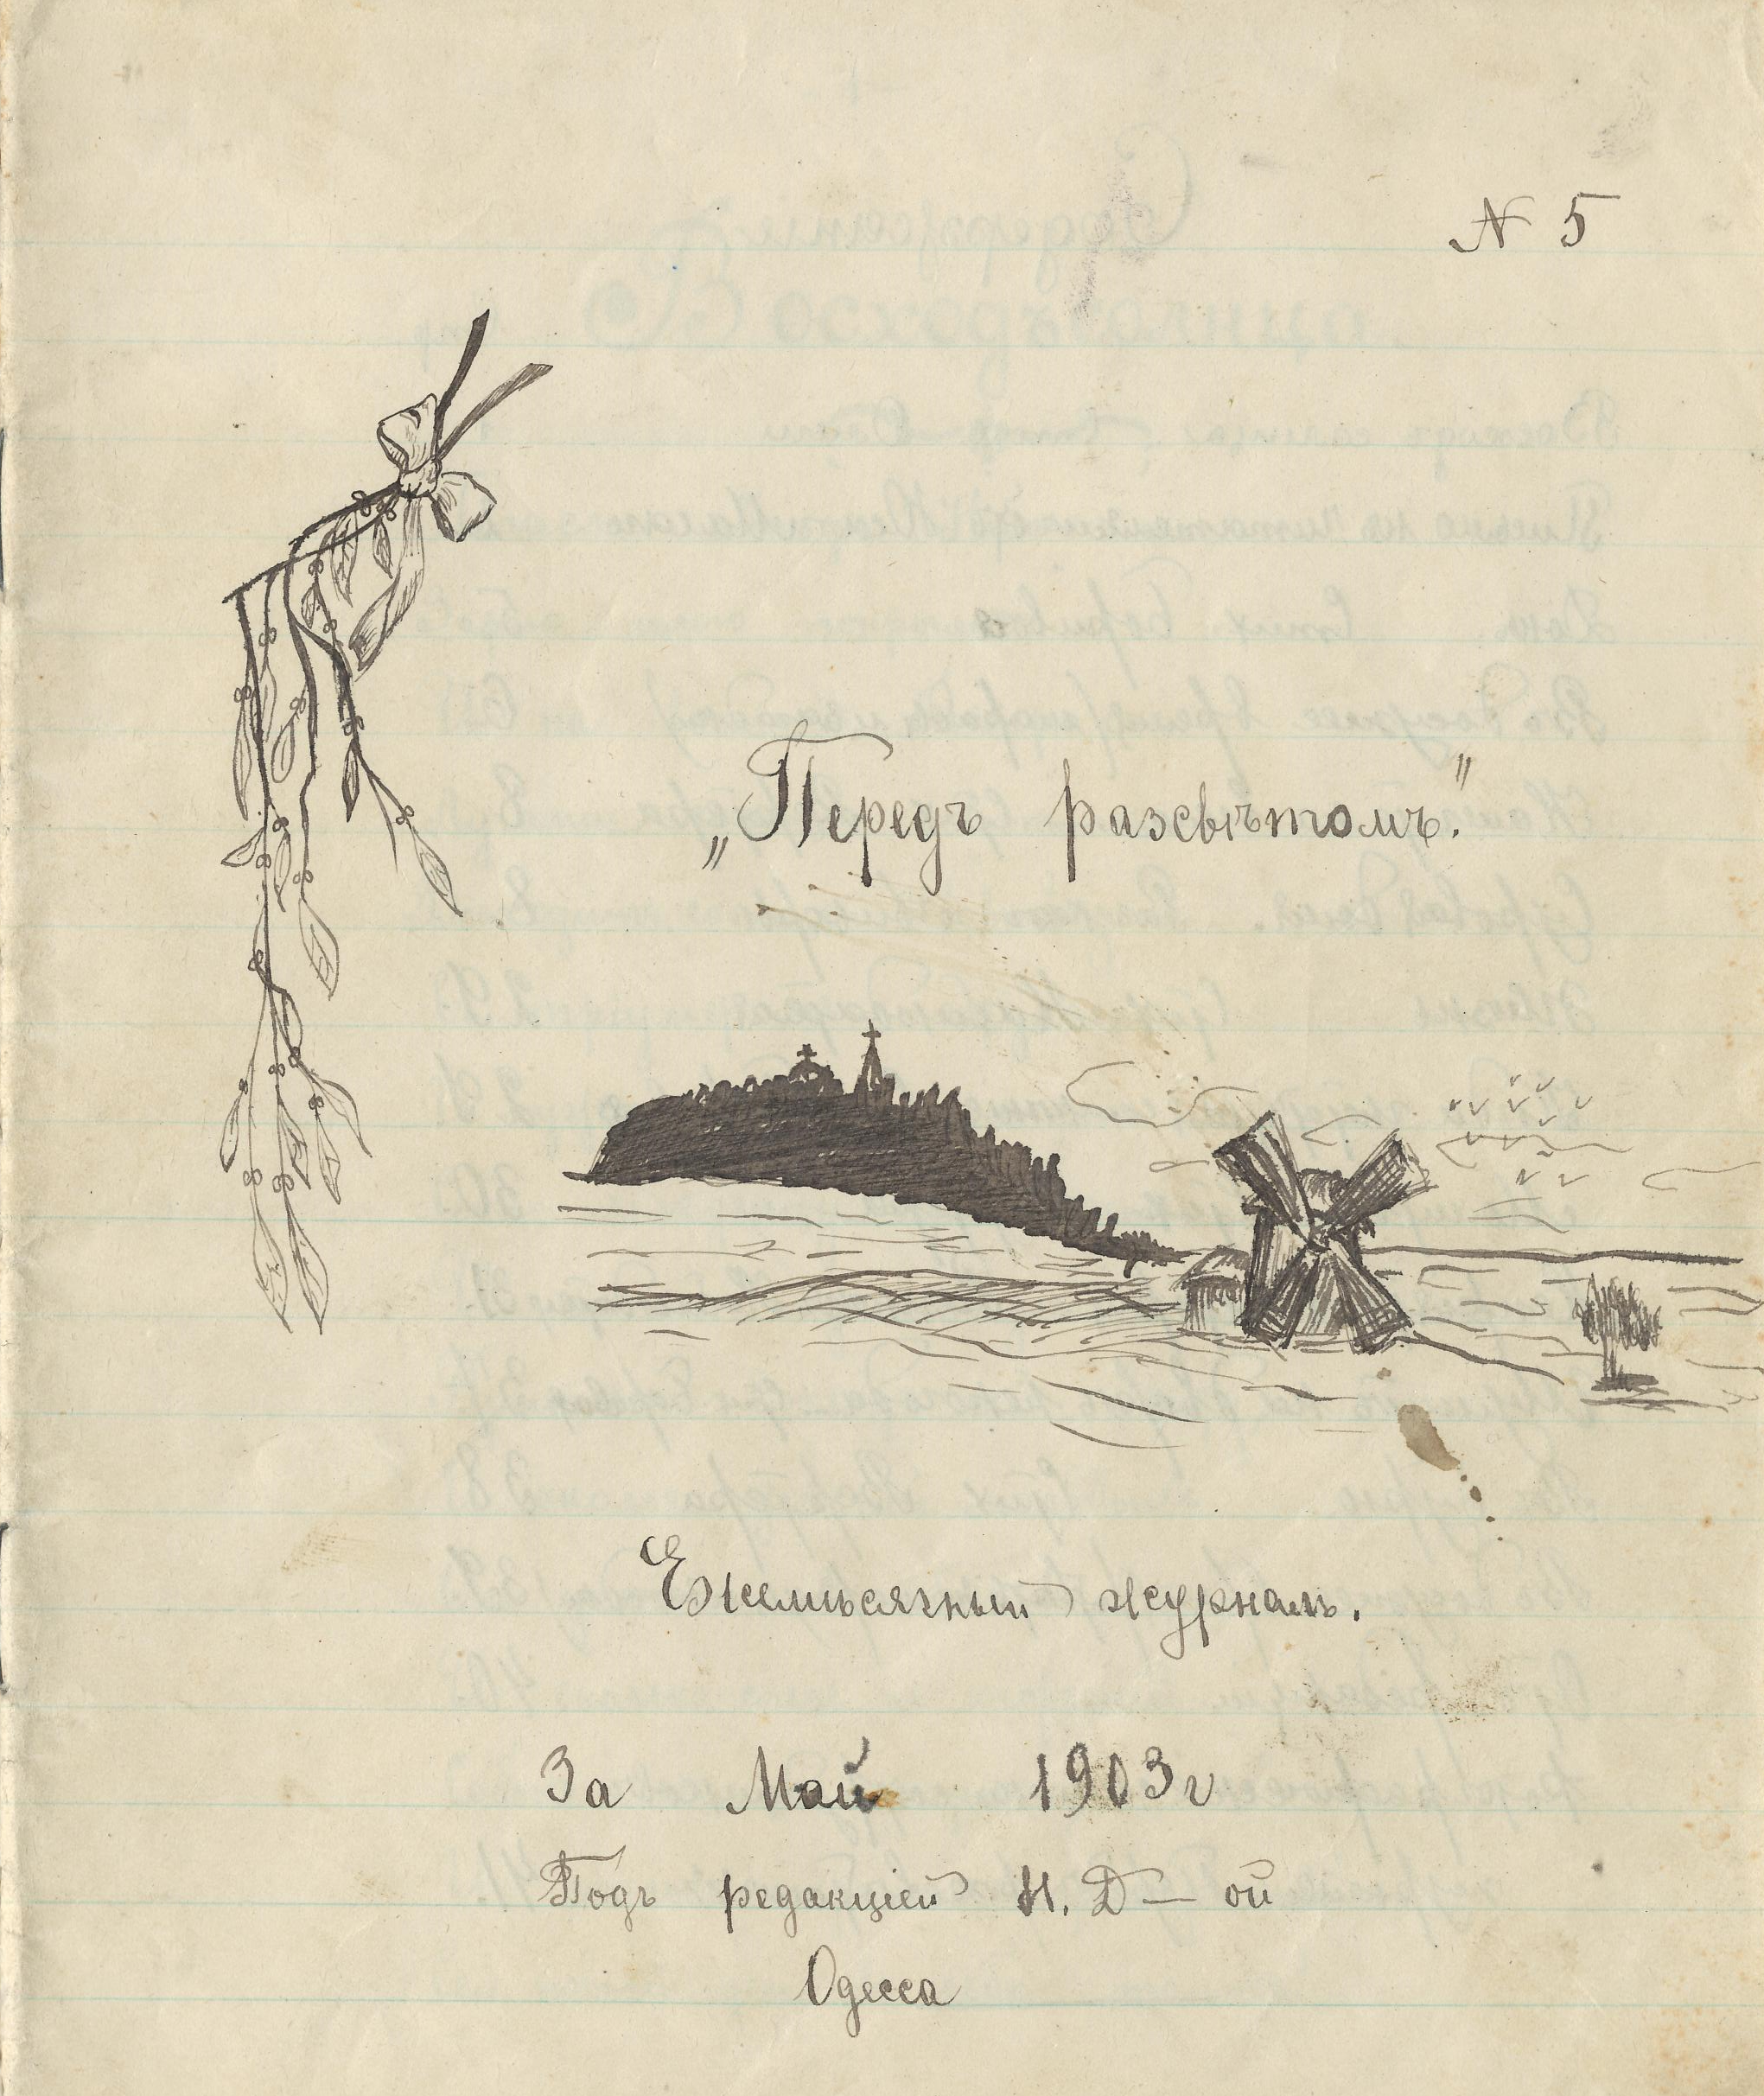 N 5
„Передъ разсвѣтомъ."
Ежемѣсячный журналъ.
За Май 1903 г
Подъ редакціей Н. Д — ой
Одесса